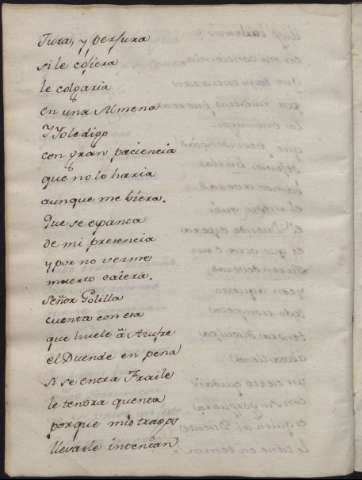 Jura, y perjura
si le cojiera
le colgaria
en una Almena
Y Yo le digo
con gran paciencia
que no lo haria
aunque me biera.
Que se espanta
de mi presencia
y por no verme
muerto caiera.
Señor Golilla
cuenta con esa
que huele â Azufre
el Duende en pena
Si se entra Fraile
le tendra quenta
porque mis trapos
llevarle intentan